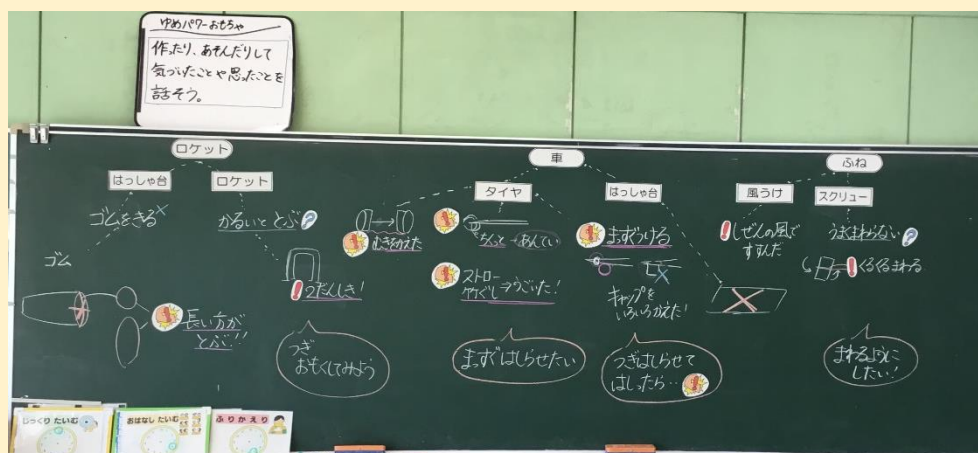 ゆめパワーおもちゃ
作ったり、あそんだりして
気づいたことや思ったことを
話そう。
ロケット
はっしゃ台
ロケット
ゴムをきる×
かるいととぶ?
ゴム
長い方が
とぶ!!
2だんしき!
つぎ
おもくしてみよう
車
タイヤ
はっしゃ台
むきかえた
ちゃんと→あんてい
ストロー
竹ぐし→うごいた!
まっすぐはしらせたい
まっすぐつける
キャップを
いろいろかえた!
つぎはしらせて
はしったら・・
ふね
風うけ
スクリュー
!しぜんの風で
すすんだ
うまくまわらない?
!くるくるまわる
まわるように
したい!
じっくりたいむ
おはなしたいむ
ふりかえり